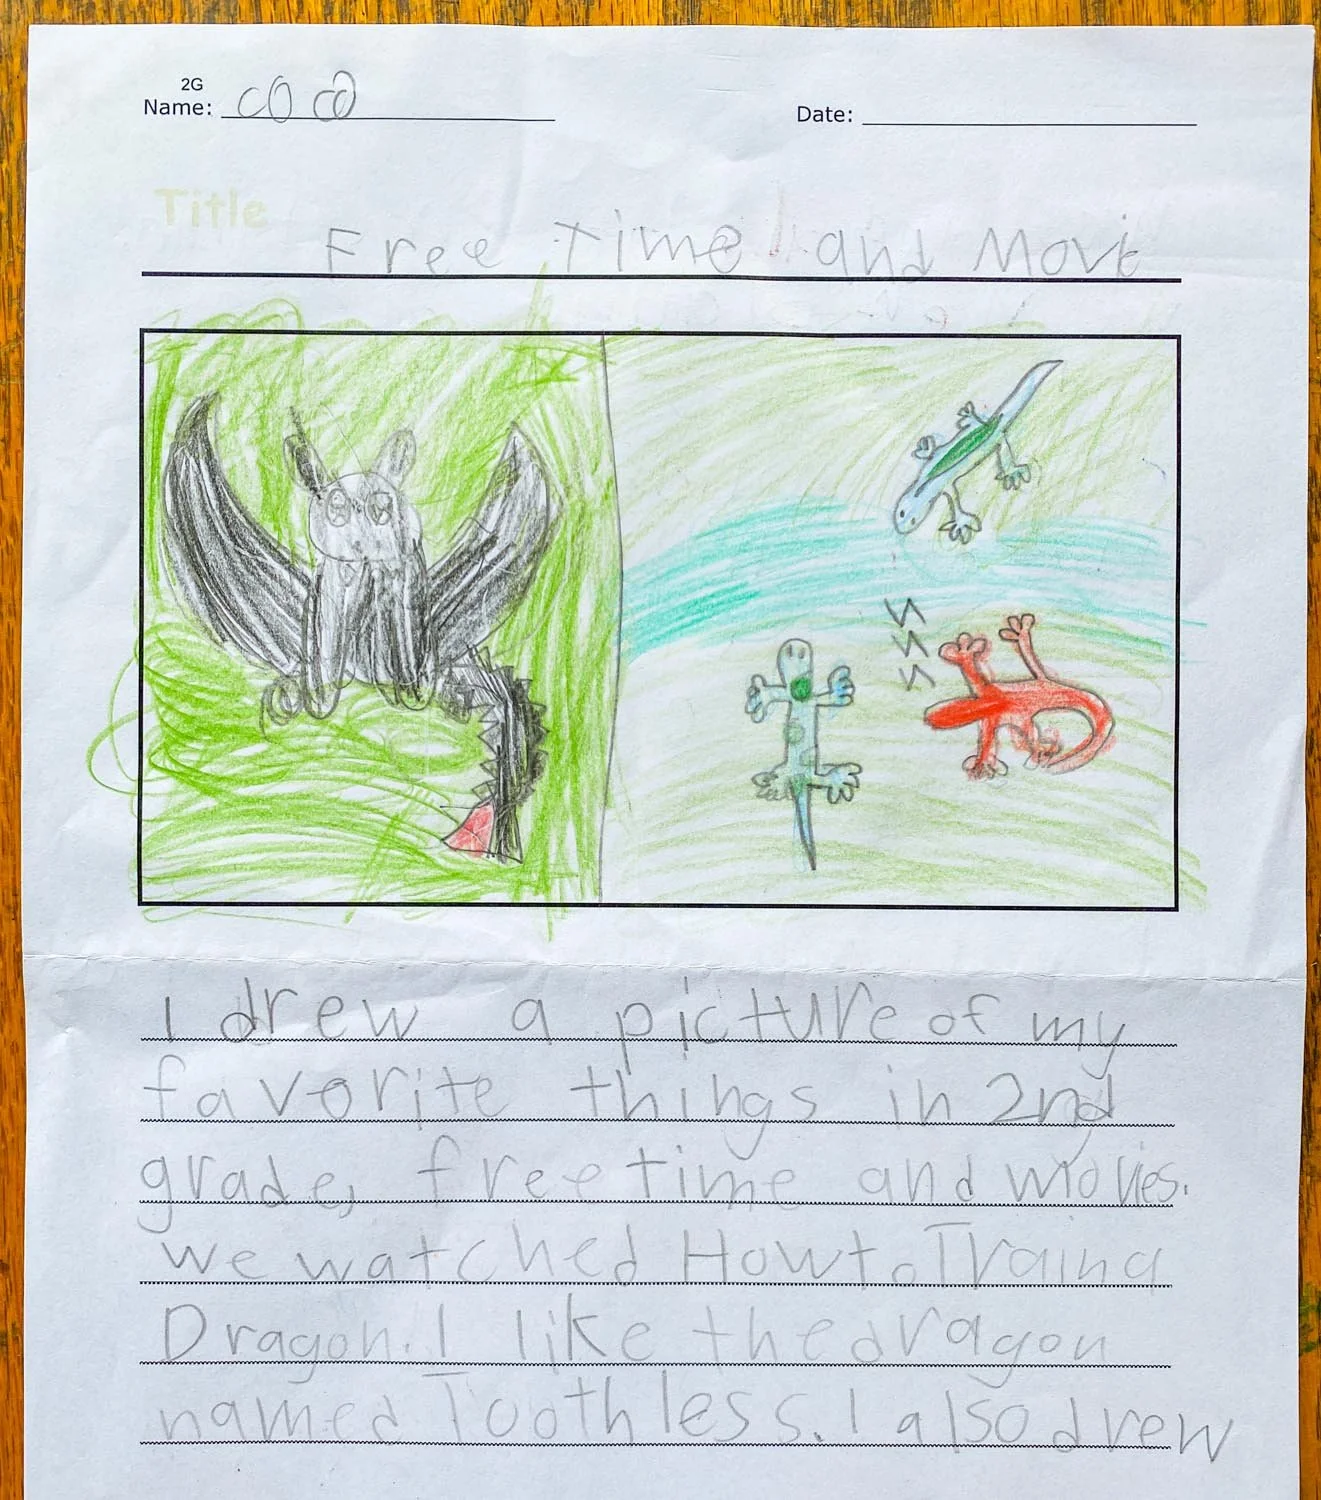 2G
Name: coco Date:
Title
Free Time and Movie
I drew a picture of my
favorite things in 2nd
grade, free time and movies.
We watched How to Train a
Dragon. I like the dragon
named Toothless. I also drew